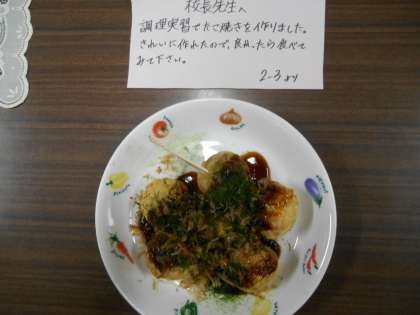 校長先生へ
調理実習でたこ焼きを作りました。
きれいに作れたので、良かったら食べて
みて下さい。
2-3より